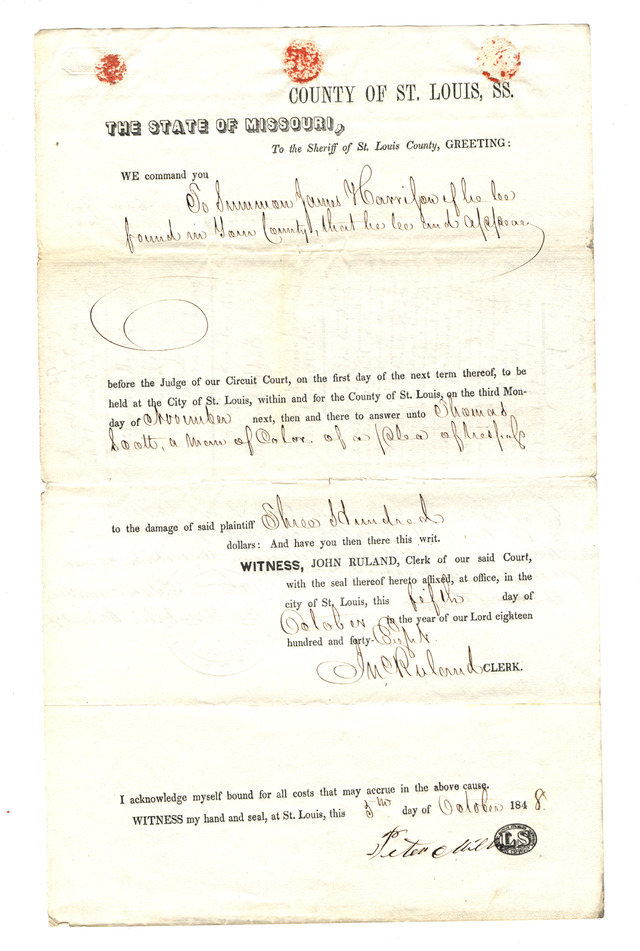 COUNTY OF ST. LOUIS, SS.
THE STATE OF MISSOURI,
To the Sheriff of St. Louis County, GREETING:
WE command you
To Summon James Harrison if he be
found in Your County, that he be and appear
before the Judge of our Circuit Court, on the first day of the next term thereof, to be
held at the City of St. Louis, within and for the County of St. Louis, on the third Mon-
day of November next, then and there to answer unto Thomas
Scott, a man of Color. of a plea of trespass
to the damage of said plaintiff Three Hundred
dollars: And have you then there this writ.
WITNESS, JOHN RULAND, Clerk of our said Court,
with the seal thereof hereto affixed, at office, in the
city of St. Louis, this fifth day of
October in the year of our Lord eighteen
hundred and forty-Eight.
Jn Ruland CLERK.
I acknowledge myself bound for all costs that may accrue in the above cause.
WITNESS my hand and seal, at St. Louis, this 5th day of October 1848
Peter LS